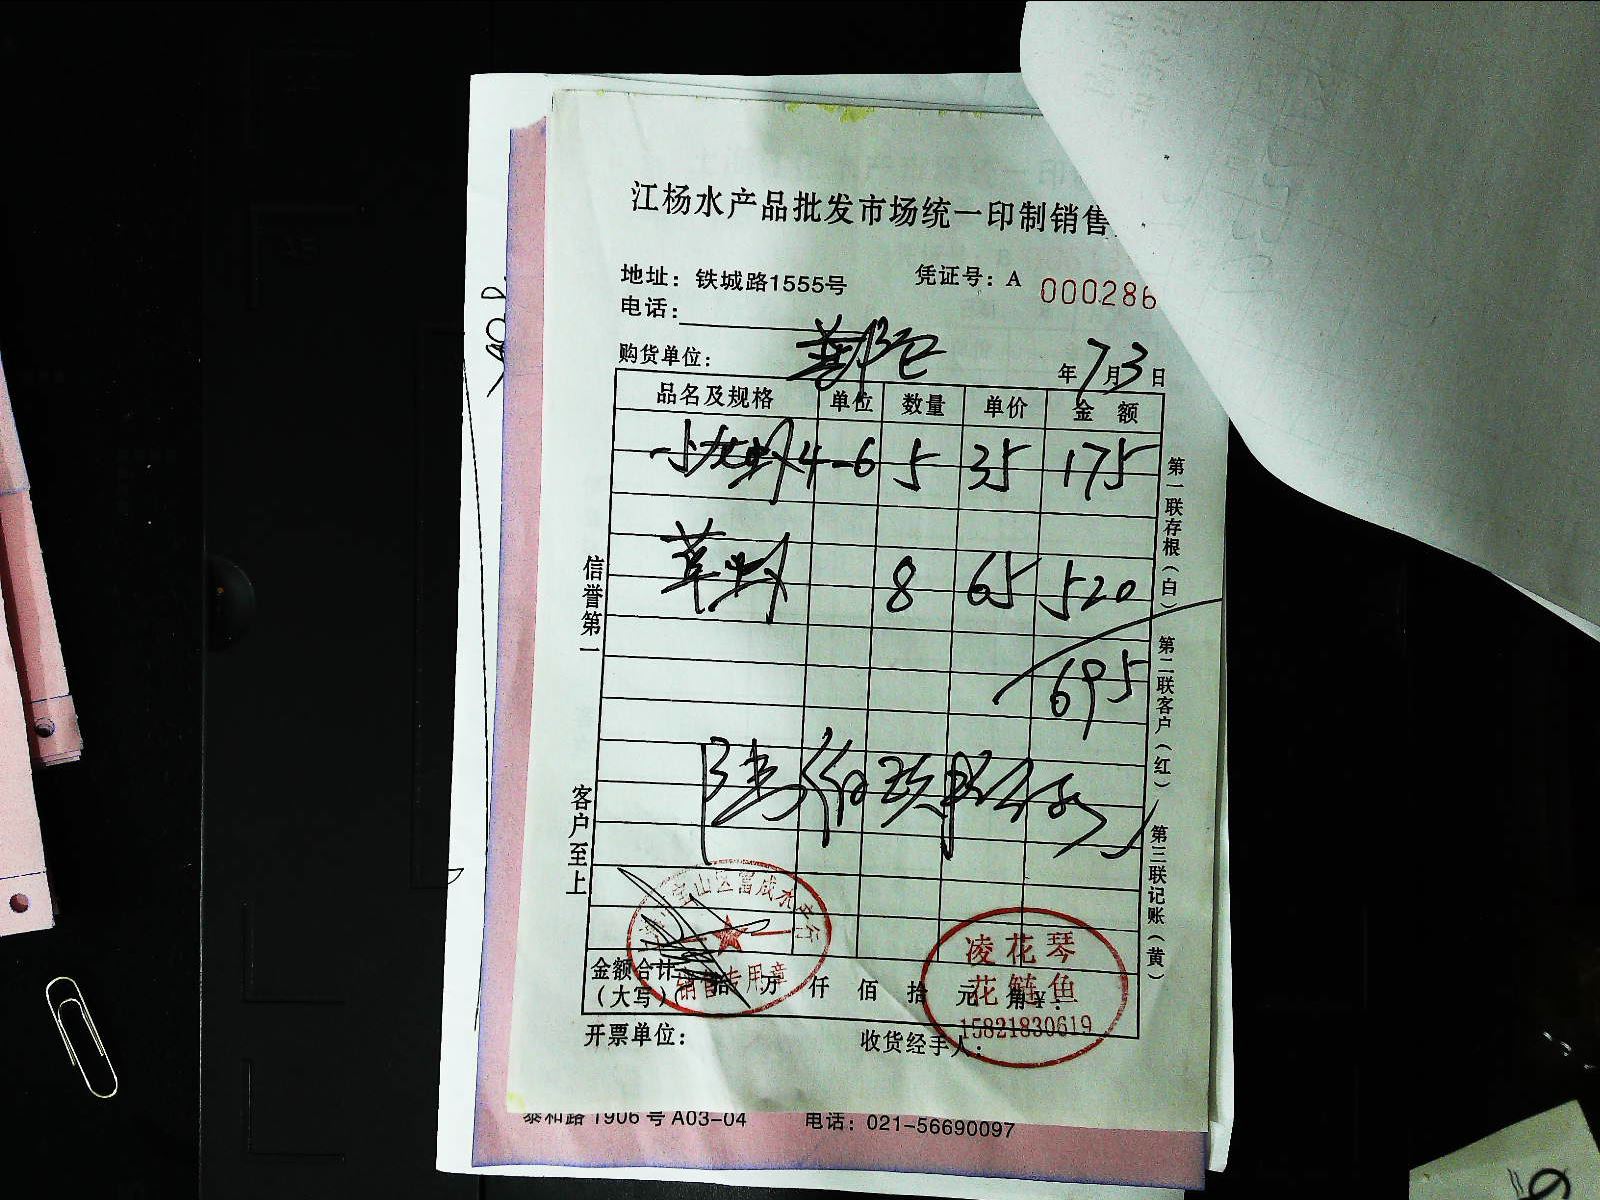 江杨水产品批发市场统一印制销售
地址：铁城路1555号 凭证号：A 000286
电话：
购货单位： 年7月3日
品名及规格 单位 数量 单价 金额
小龙虾 4-6 5 35 175
草虾 8 65 520
695
陆佰玖拾伍
信誉第一
客户至上
第一联存根（白）
第二联客户（红）
第三联记账（黄）
宝山区富成水产行
销售专用章
凌花琴
花鲢鱼
15821830619
金额合计
（大写） 拾 万 仟 佰 拾 元 角 ¥：
开票单位： 收货经手人：
泰和路1906号A03-04 电话：021-56690097